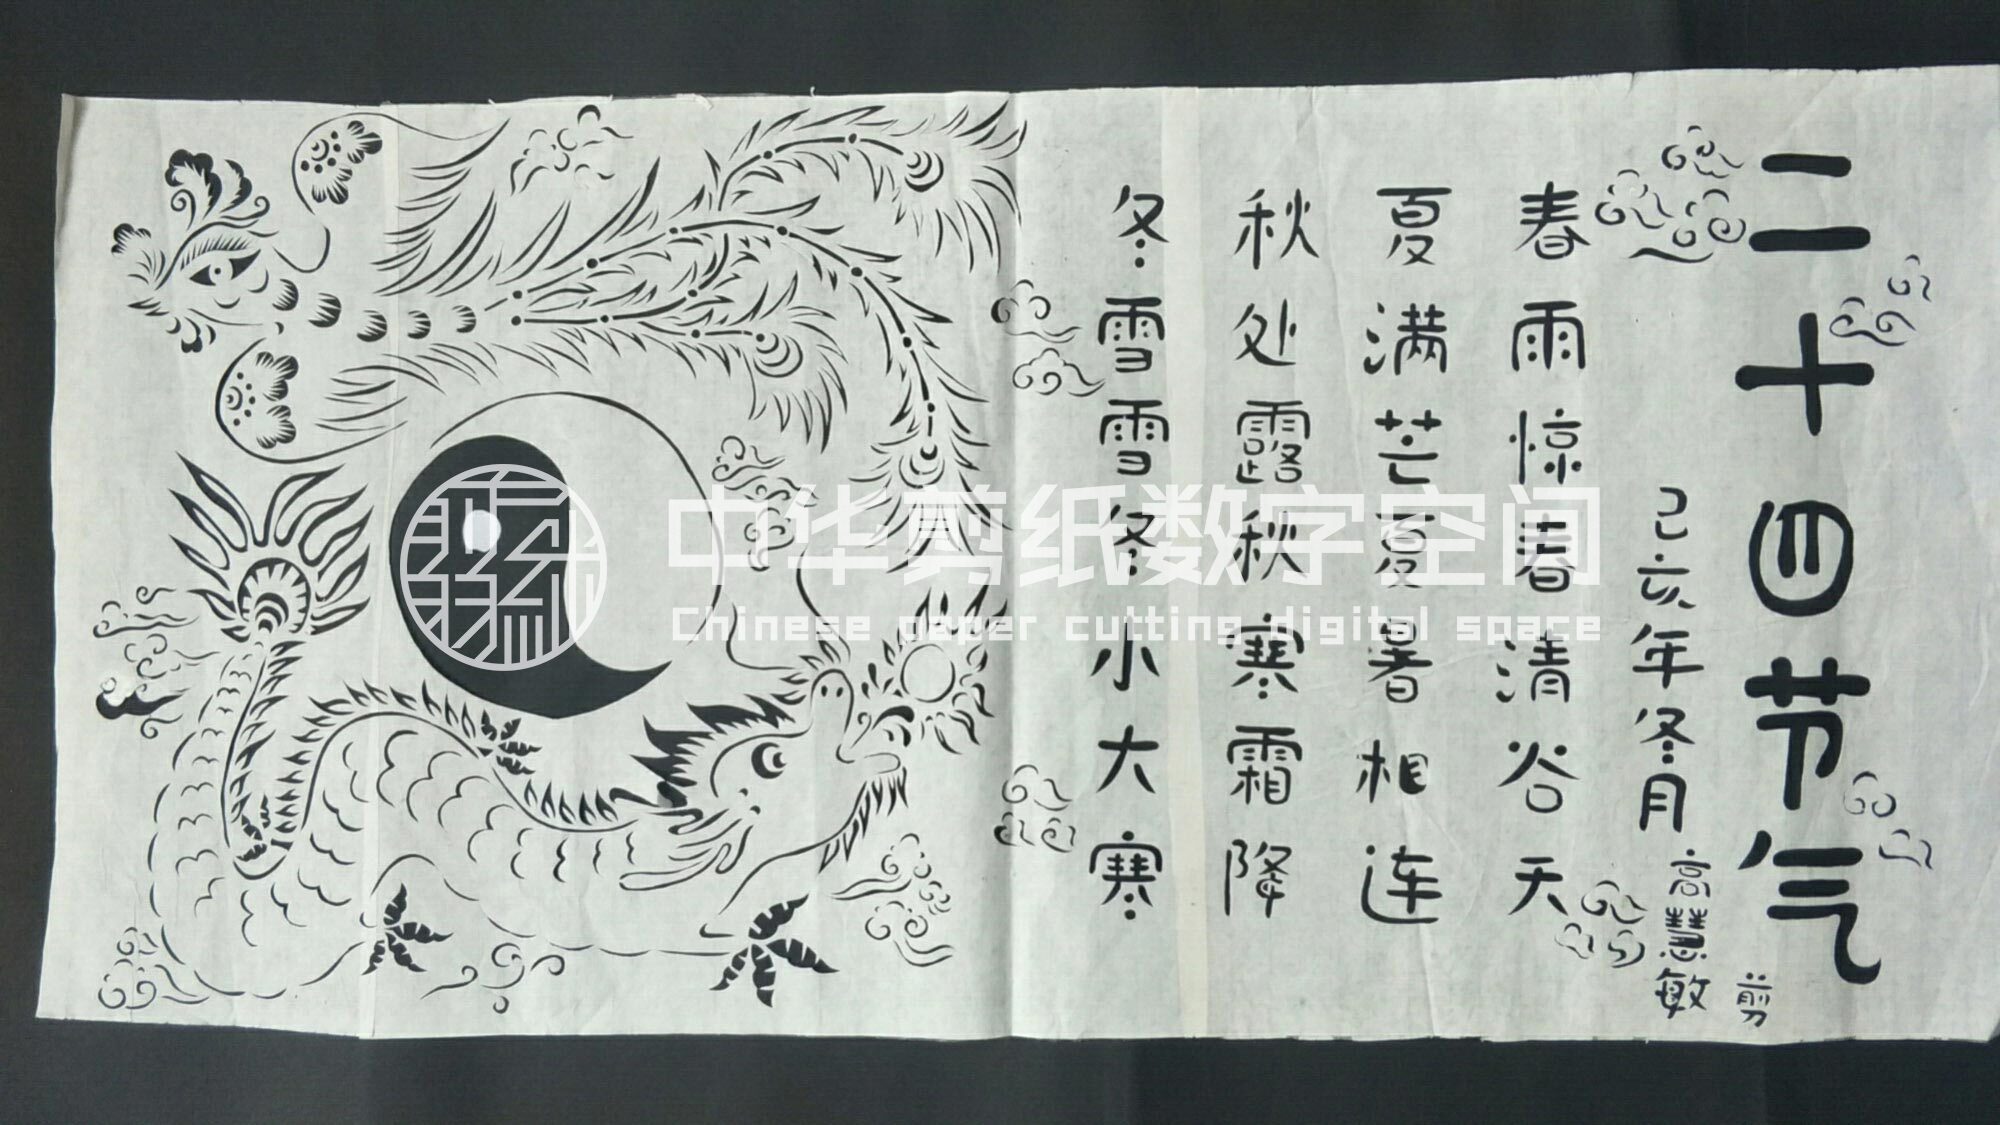 二十四节气
己亥年冬月
高慧敏
剪
春雨惊春清谷天
夏满芒夏暑相连
秋处露秋寒霜降
冬雪雪冬小大寒
中华剪纸数字空间
Chinese paper cutting digital space